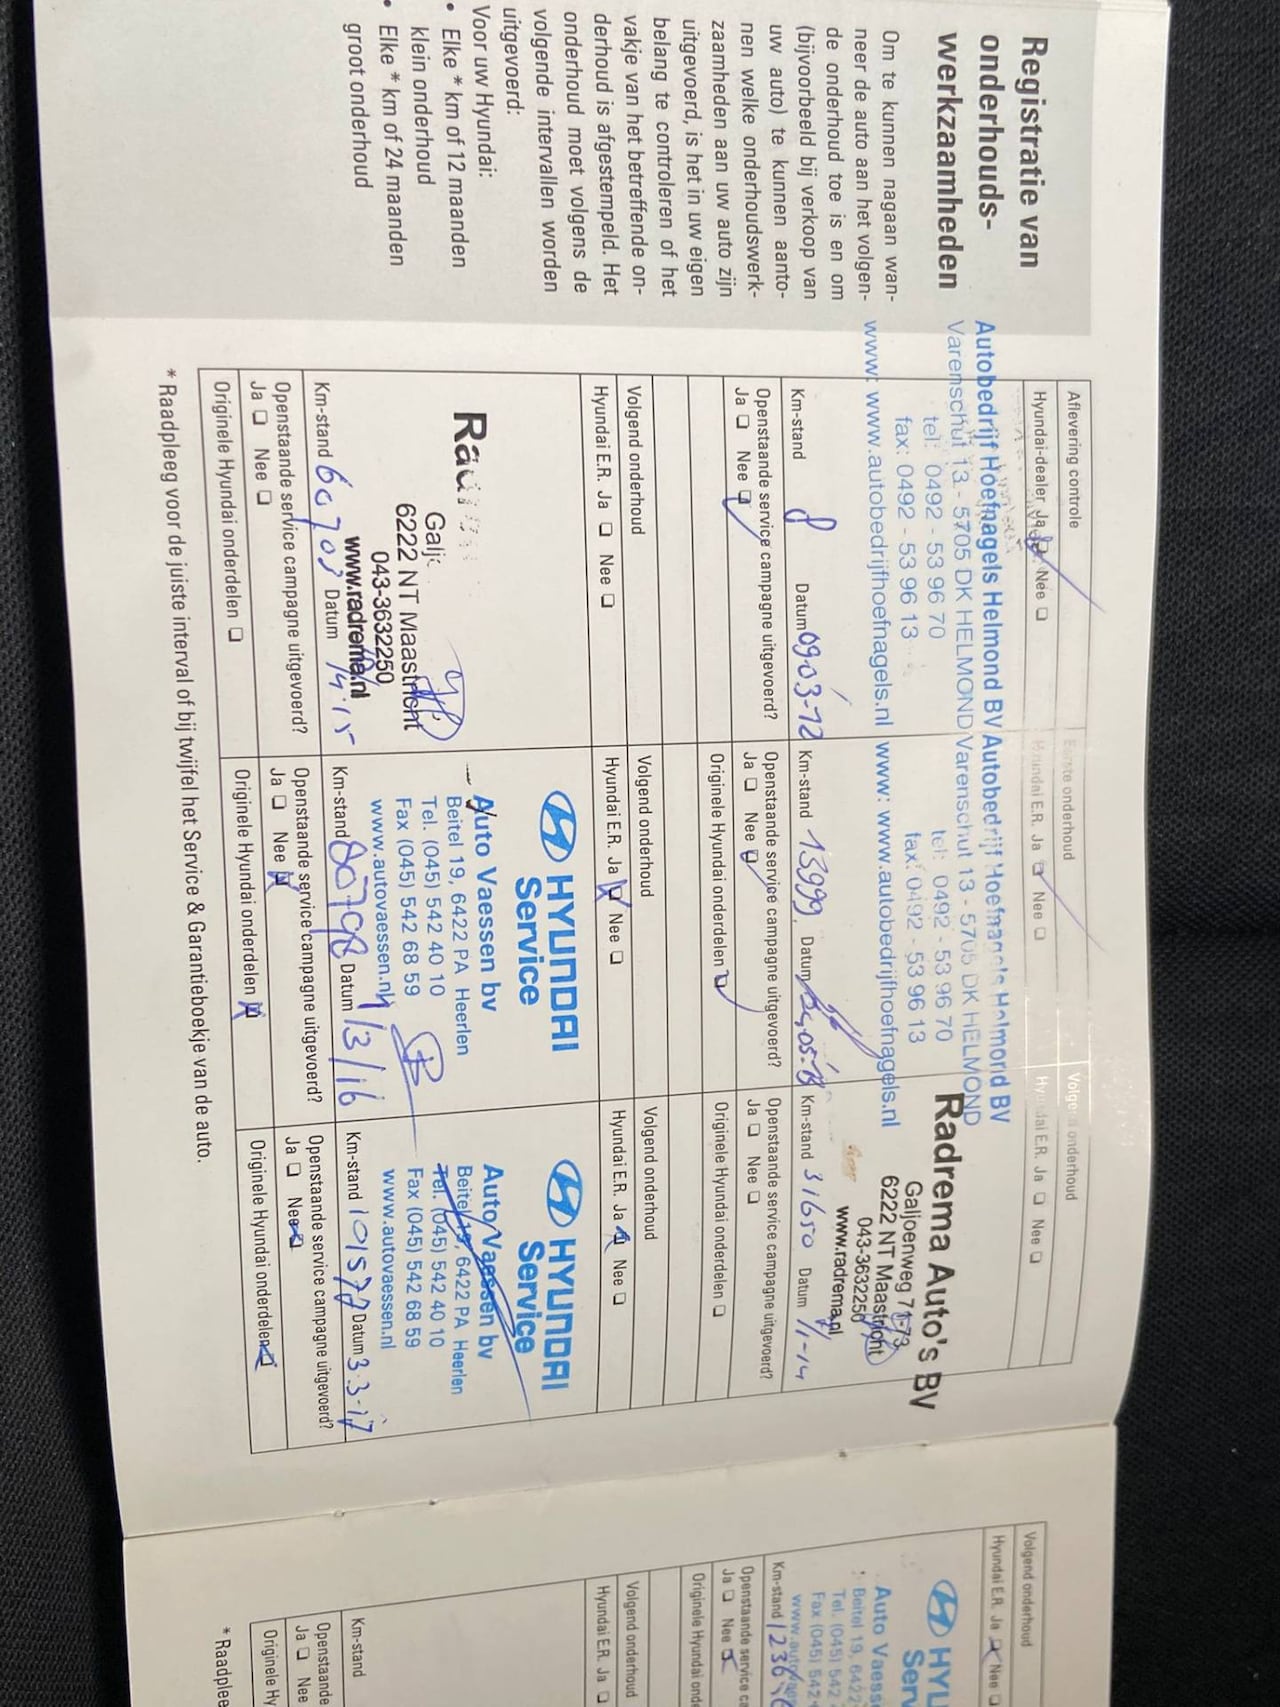 Registratie van
onderhouds-
werkzaamheden
Om te kunnen nagaan wan-
neer de auto aan het volgen-
de onderhoud toe is en om
(bijvoorbeeld bij verkoop van
uw auto) te kunnen aanto-
nen welke onderhoudswerk-
zaamheden aan uw auto zijn
uitgevoerd, is het in uw eigen
belang te controleren of het
vakje van het betreffende on-
derhoud is afgestempeld. Het
onderhoud moet volgens de
volgende intervallen worden
uitgevoerd:
Voor uw Hyundai:
• Elke * km of 12 maanden
klein onderhoud
• Elke * km of 24 maanden
groot onderhoud
Aflevering controle
Hyundai-dealer Ja ❑ Nee ❑
Autobedrijf Hoefnagels Helmond BV
Varenschut 13 - 5705 DK HELMOND
tel: 0492 - 53 96 70
fax: 0492 - 53 96 13
www: www.autobedrijfhoefnagels.nl
Km-stand 8 Datum 09-03-12
Openstaande service campagne uitgevoerd?
Ja ❑ Nee ❑
Eerste onderhoud
Hyundai E.R. Ja ❑ Nee ❑
Autobedrijf Hoefnagels Helmond BV
Varenschut 13 - 5705 DK HELMOND
tel: 0492 - 53 96 70
fax: 0492 - 53 96 13
www: www.autobedrijfhoefnagels.nl
Km-stand 13999 Datum
Openstaande service campagne uitgevoerd?
Ja ❑ Nee ❑
Originele Hyundai onderdelen ❑
Volgend onderhoud
Hyundai E.R. Ja ❑ Nee ❑
Radrema Auto's BV
Galjoenweg 71-73
6222 NT Maastricht
043-3632250
www.radrema.nl
Km-stand 31650 Datum 1/1-14
Openstaande service campagne uitgevoerd?
Ja ❑ Nee ❑
Originele Hyundai onderdelen ❑
Volgend onderhoud
Hyundai E.R. Ja ❑ Nee ❑
6222 NT Maastricht
043-3632250
www.radrema.nl
Km-stand 60703 Datum
Openstaande service campagne uitgevoerd?
Ja ❑ Nee ❑
Originele Hyundai onderdelen ❑
Volgend onderhoud
Hyundai E.R. Ja ❑ Nee ❑
HYUNDAI
Service
Auto Vaessen bv
Beitel 19, 6422 PA Heerlen
Tel. (045) 542 40 10
Fax (045) 542 68 59
www.autovaessen.nl
Km-stand 80798 Datum 1/3/16
Openstaande service campagne uitgevoerd?
Ja ❑ Nee ❑
Originele Hyundai onderdelen ❑
Volgend onderhoud
Hyundai E.R. Ja ❑ Nee ❑
HYUNDAI
Service
Auto Vaessen bv
Beitel 19, 6422 PA Heerlen
Tel. (045) 542 40 10
Fax (045) 542 68 59
www.autovaessen.nl
Km-stand 101570 Datum 3-3-17
Openstaande service campagne uitgevoerd?
Ja ❑ Nee ❑
Originele Hyundai onderdelen ❑
* Raadpleeg voor de juiste interval of bij twijfel het Service & Garantieboekje van de auto.
Volgend onderhoud
Hyundai E.R. Ja ❑ Nee ❑
HYU
Serv
Auto Vaess
Beitel 19, 6422
Tel. (045) 542
Fax (045) 542
Km-stand
Openstaande service ca
Ja ❑ Nee ❑
Originele Hyundai onde
Volgend onderhoud
Hyundai E.R. Ja ❑
Km-stand
Openstaande
Ja ❑ Nee
Originele Hy
* Raadplee